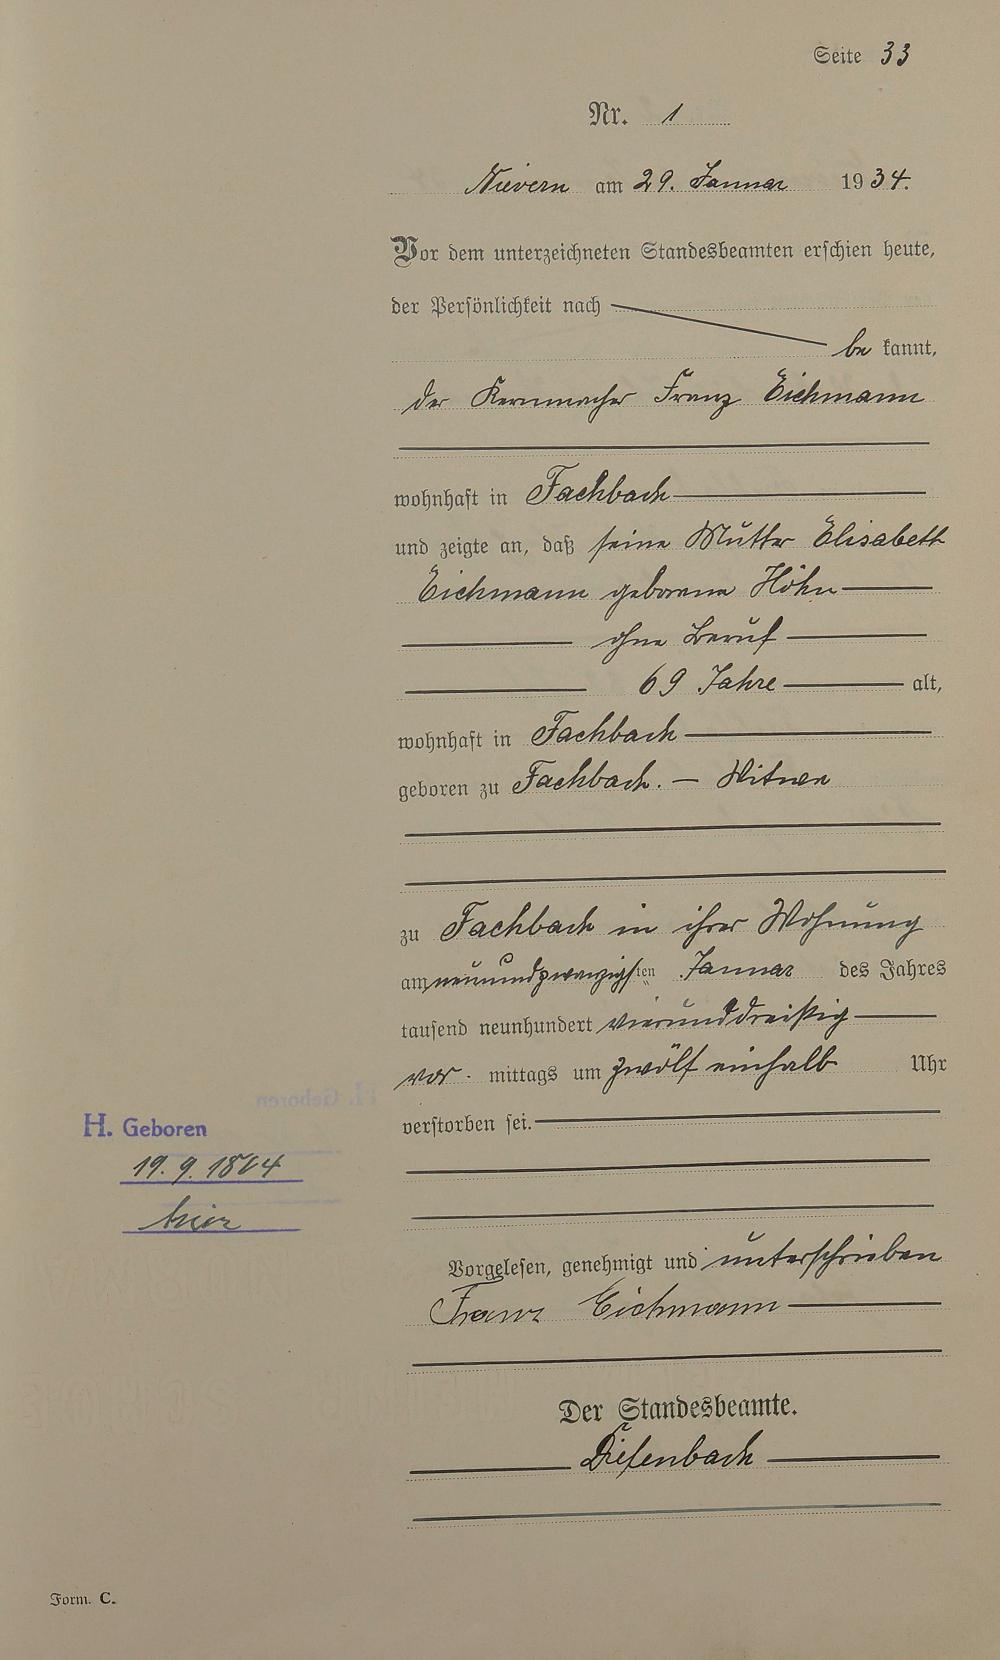 Seite 33
Nr. 1
Nievern am 29. Januar 1934.
Vor dem unterzeichneten Standesbeamten erschien heute,
der Persönlichkeit nach
be kannt,
der Kernmacher Franz Eichmann
wohnhaft in Fachbach
und zeigte an, daß seine Mutter Elisabeth
Eichmann geborene Höhn
ohne Beruf
69 Jahre alt,
wohnhaft in Fachbach
geboren zu Fachbach. — Witwe
zu Fachbach in ihrer Wohnung
am neunundzwanzigsten Januar des Jahres
tausend neunhundert vierunddreißig
vor- mittags um zwölf einhalb Uhr
verstorben sei.
H. Geboren
19. 9. 1864
Vorgelesen, genehmigt und unterschrieben
Franz Eichmann
Der Standesbeamte.
Diefenbach
Form. C.